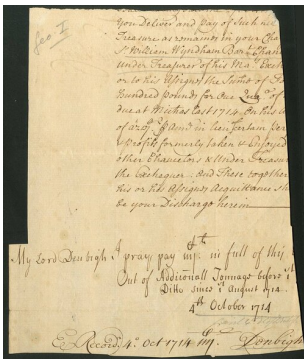 Geo I
you Deliver and pay of Such his
Treasure as remains in your Cha
Sr William Wyndham Bart Chan
under Treasurer of his Mats Excheq
or to his Assignes the Sume of
Hundred pounds for one Quar of
due at Michas Last 1714. On his
of 1200 £ P Ann in lieu of certain per
& profits formerly taken & Enjoyed
other Chancelors & Under Treasur
the Exchequer. And These together
his or his Assignes Acquittance sha
be your Discharge herein
My Lord Denbigh I pray pay in full of this
Out of Additionall Tonnage before
Ditto since 1st August 1714
4th October 1714
Recordr 4o Oct 1714
Denbigh